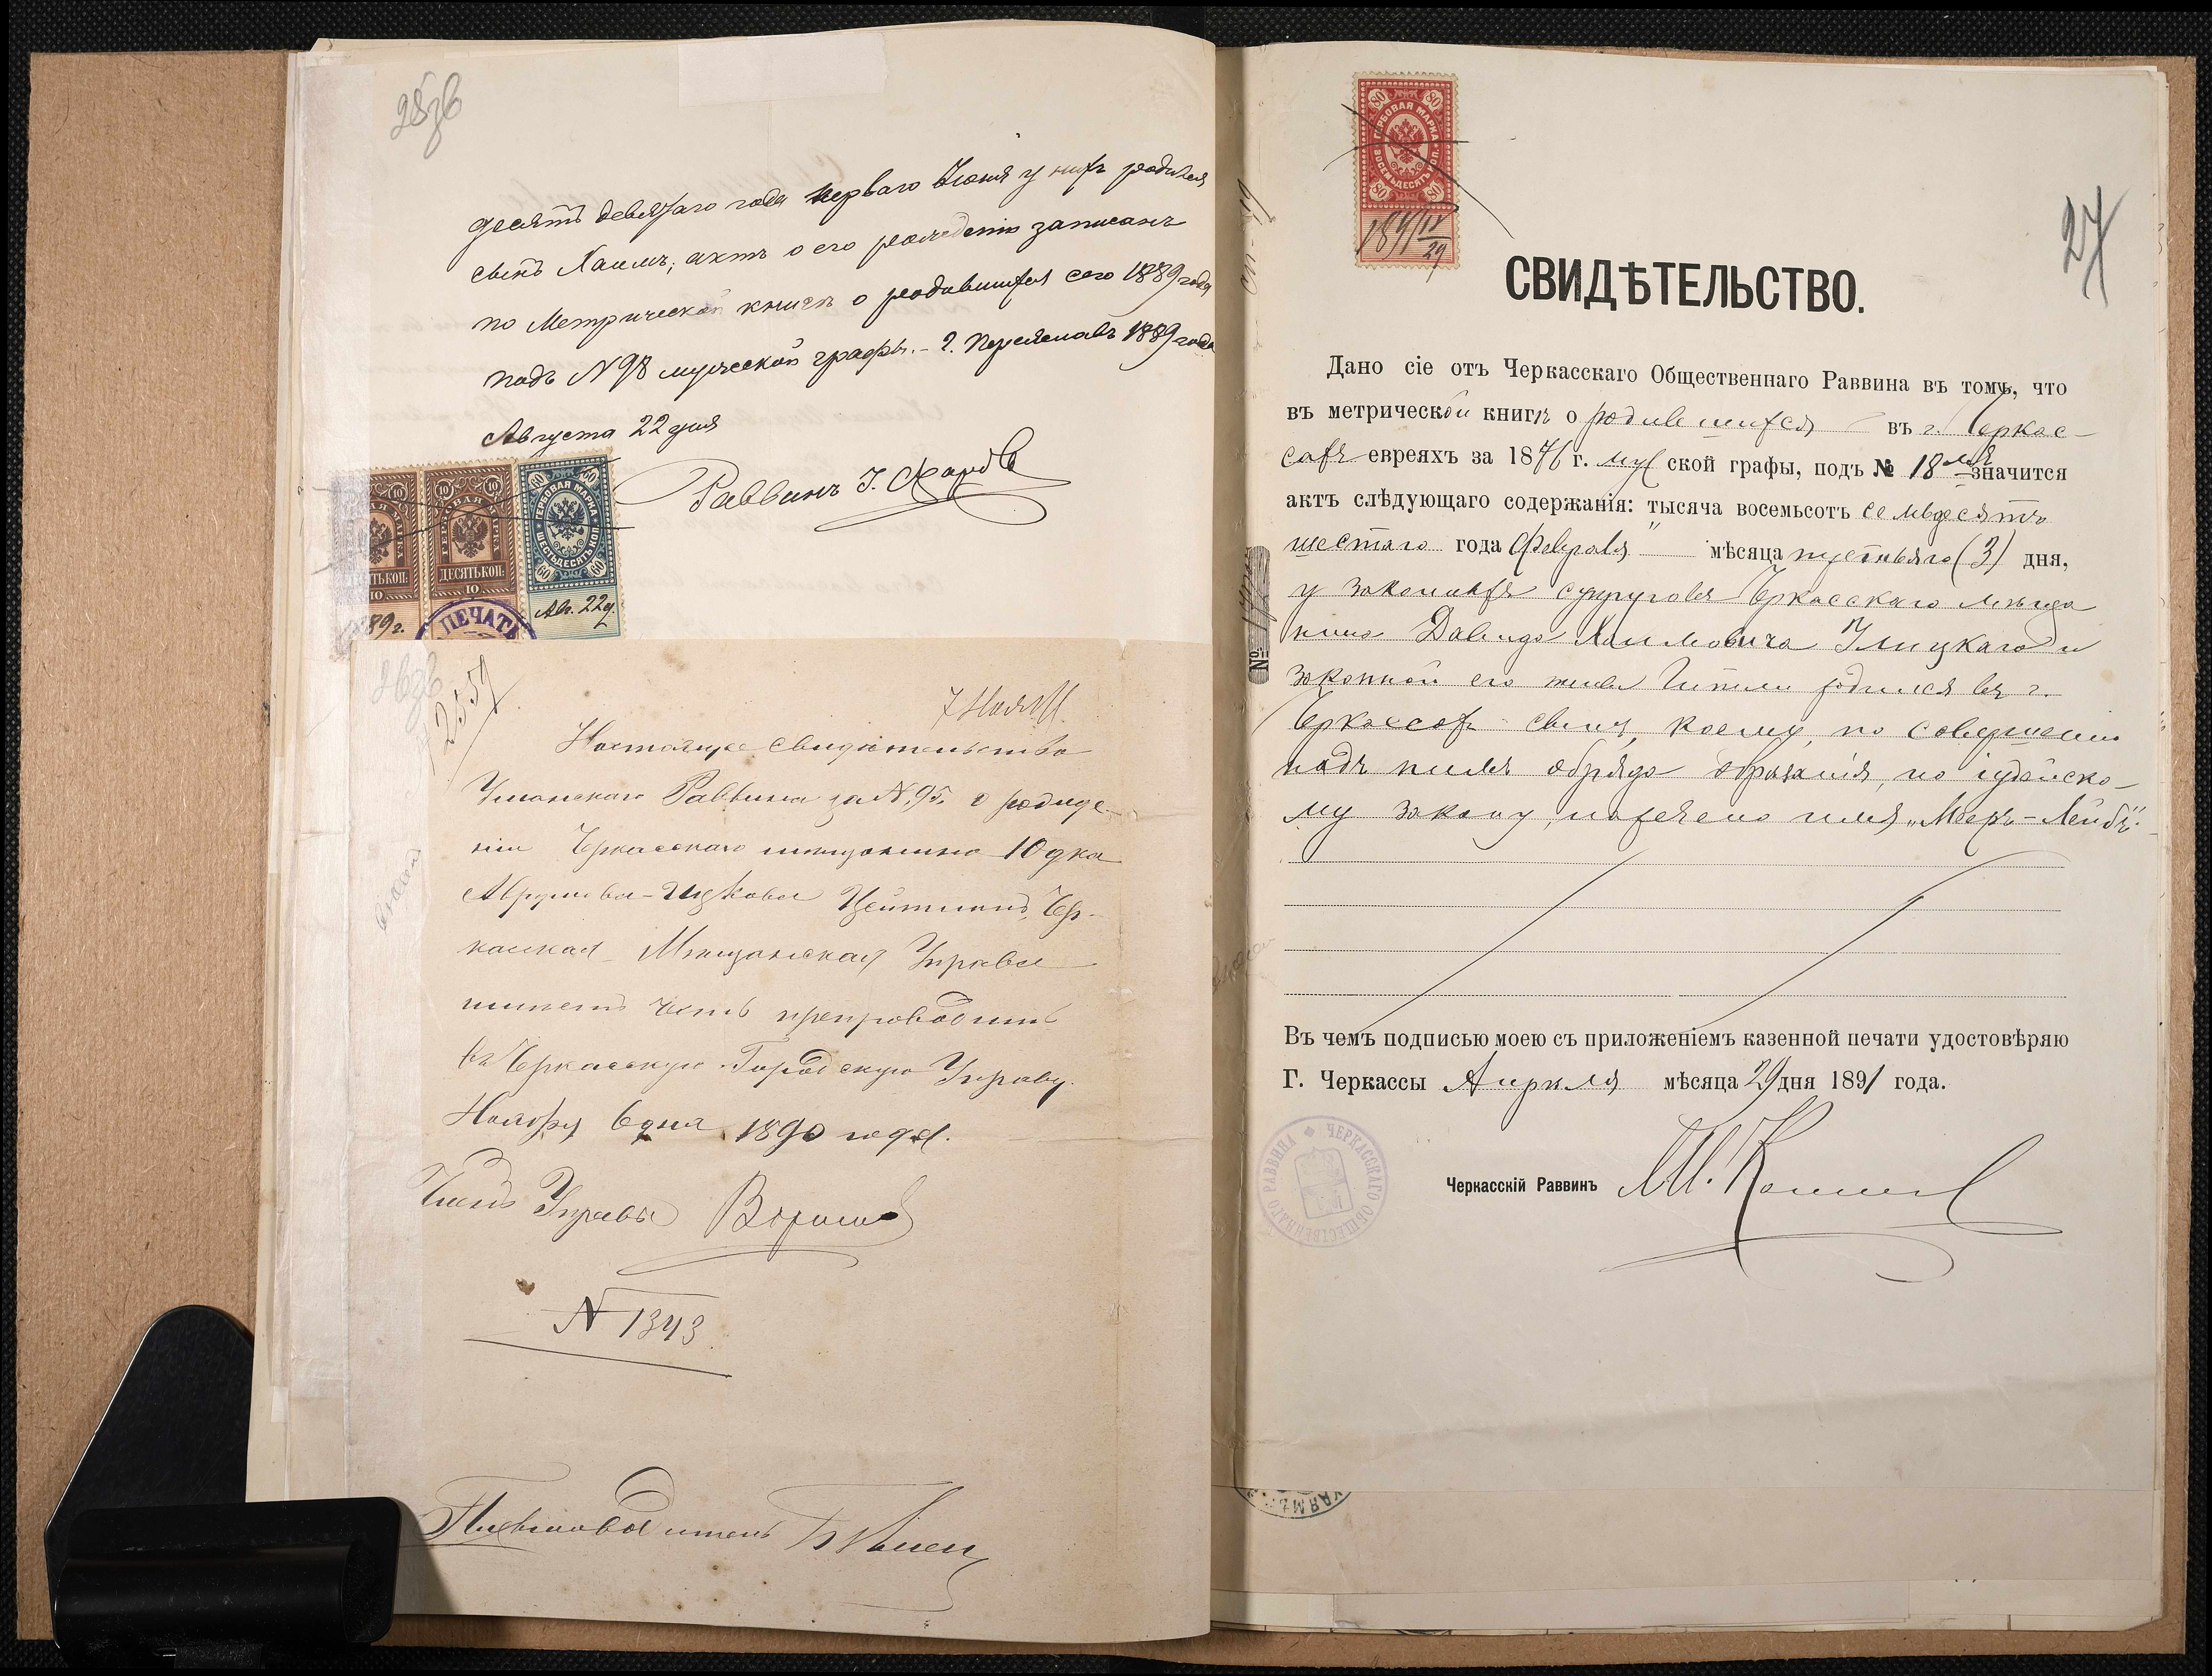 десятъ девятаго года перваго Іюня у нихъ родился
сынъ Хаимъ, актъ о его рожденіи записанъ
по Метрической книгѣ о родившихся сего 1889 года
подъ N 98 мужеской графы. - г. Переяславъ 1889 года
Августа 22 дня
Раввинъ І.
10 10
10 10
60 60
ГЕРБОВАЯ МАРКА
ШЕСТЬДЕСЯТЪ КОП.
60 60
ДЕСЯТЬ КОП:
10
89 г.
Ав. 22 д.
ПЕЧАТЬ
7 Нояб.
Настоящее свидѣтельство
Уманскаго Раввина за N. 95. о рожде-
ніи Черкасскаго мѣщанина
Аврумова-Ицкова Цейтлинъ, Чер-
касская Мѣщанская Управа
имѣетъ честь препроводить
въ Черкасскую Городскую Управу.
Ноября 6 дня 1890 года.
Членъ Управы
N 1343
27
80 80
ГЕРБОВАЯ МАРКА
ВОСЕМЬДЕСЯТЪ КОП.
80 80
1891 IV/29
СВИДѢТЕЛЬСТВО.
Дано сіе отъ Черкасскаго Общественнаго Раввина въ томъ, что
въ метрической книгѣ о родившихся въ г. Черкас-
сахъ евреяхъ за 1876 г. муж ской графы, подъ № 18 значится
актъ слѣдующаго содержанія: тысяча восемьсотъ семьдесятъ
шестаго года Февраля мѣсяца третьяго (3) дня,
у законныхъ супруговъ Черкасскаго мѣща
нина Давида Хаимовича Улицкаго и
законной его жены родился въ г.
Черкассахъ сынъ, коему, по совершеніи
надъ нимъ обряда обрѣзанія, по іудейско-
му закону, наречено имя „Мееръ-Лейбъ".
Въ чемъ подписью моею съ приложеніемъ казенной печати удостовѣряю
Г. Черкассы Апрѣля мѣсяца 29 дня 1891 года.
ЧЕРКАССКАГО ОБЩЕСТВЕННАГО РАВВИНА
Черкасскій Раввинъ